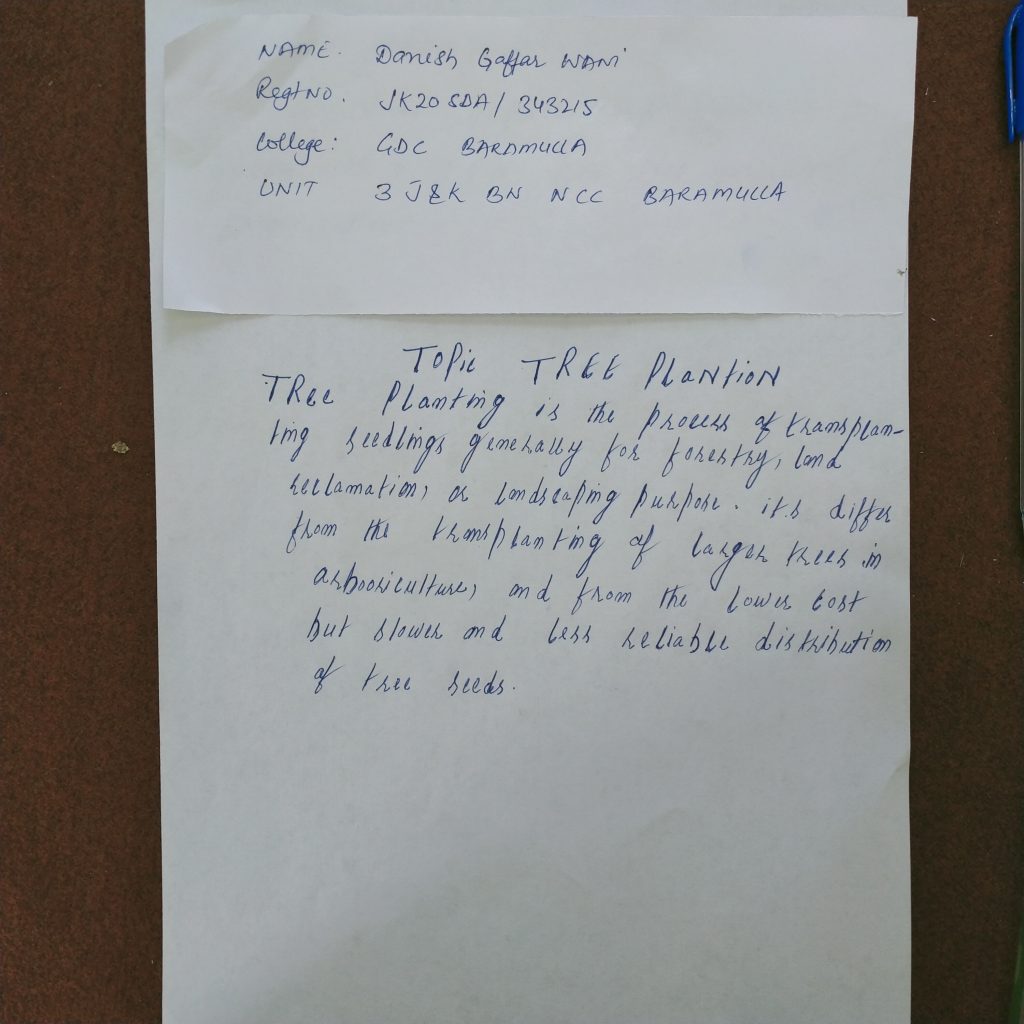 NAME. Danish Gaffar WANI
Regt NO. JK20 SDA/ 343215
College: GDC BARAMULLA
UNIT 3 J&K BN NCC BARAMULLA
TOPic TREE PLANTION
TRee Planting is the process of transplan-
ting seedlings generally for forestry, land
reclamation, or landscaping purpose. it.s differ
from the transplanting of larger trees in
arbooriculture, and from the lower cost
but slower and less reliable distribution
of tree seeds.